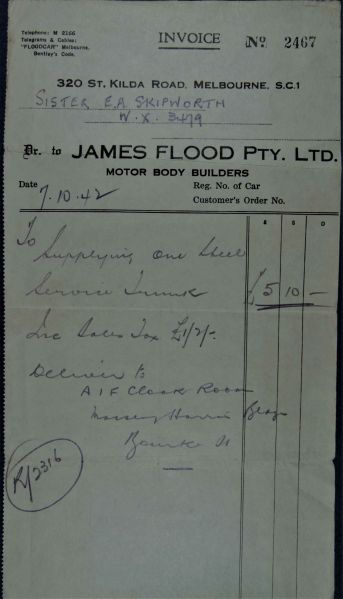 Telephone: M 2166
Telegrams & Cables:
"FLOODCAR" Melbourne.
Bentley's Code.
INVOICE
No 2467
320 ST. KILDA ROAD, MELBOURNE, S.C.1
SISTER E.A. SKIPWORTH
W.X. 3479
Dr. to JAMES FLOOD PTY. LTD.
MOTOR BODY BUILDERS
Date 7.10.42
Reg. No. of Car
Customer's Order No.
£ S D
To Supplying one Steel
Service Trunk £5 10 -
Inc Sales Tax £1/2/-
Deliver to
AIF Cloak Room
Massey Harris Bldgs
Bourke St
R/2316